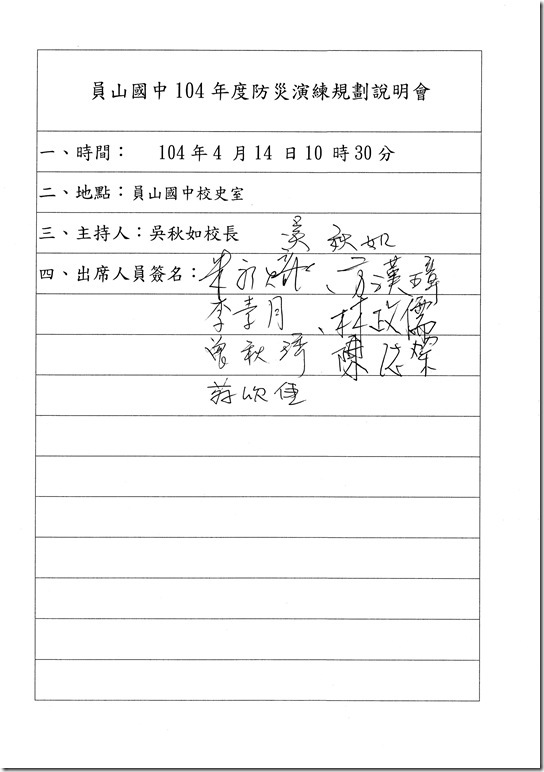 員山國中104年度防災演練規劃說明會
一、時間： 104年4月14日10時30分
二、地點：員山國中校史室
三、主持人：吳秋如校長 吳秋如
四、出席人員簽名： 漢璋
李 月、林政儒
曾秋琦 陳
莊欣佳